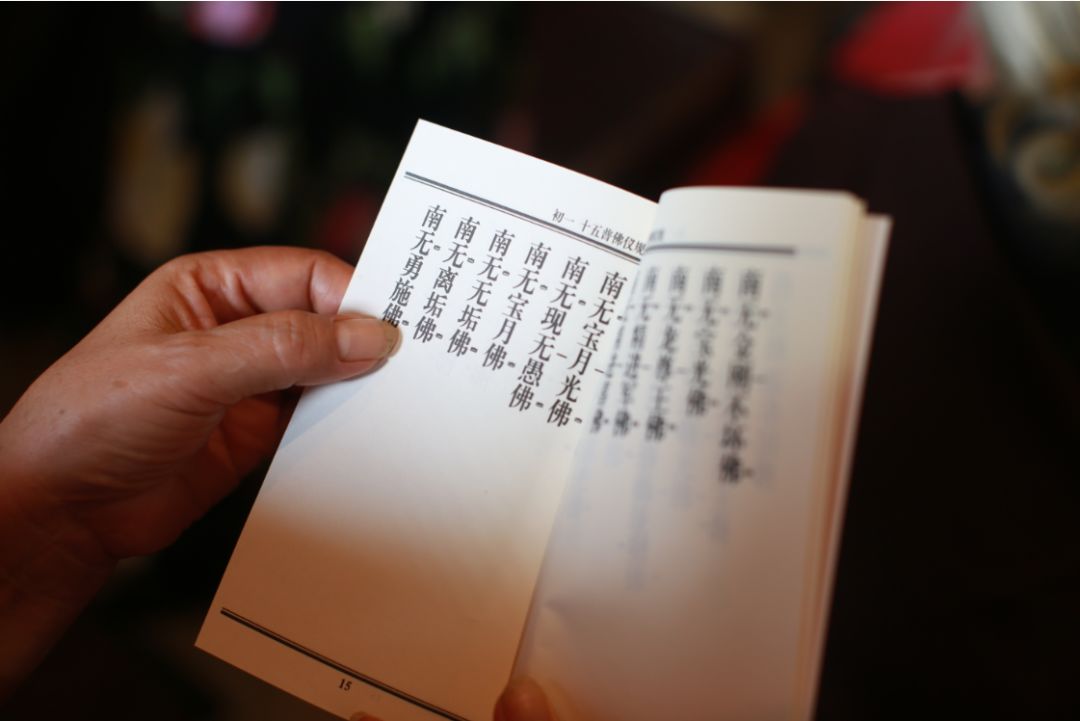 南无金刚不坏佛
南无宝光佛
南无龙尊王佛
南无精进军佛
初一 十五普佛仪规
南无宝月光佛
南无现无愚佛
南无宝月佛
南无无垢佛
南无离垢佛
南无勇施佛
15